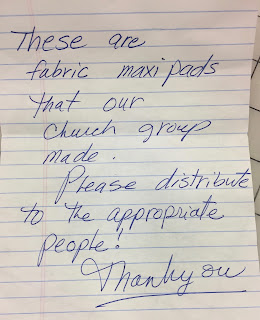 These are
fabric maxi pads
that our
church group
made.
Please distribute
to the appropriate
people!
Thankyou